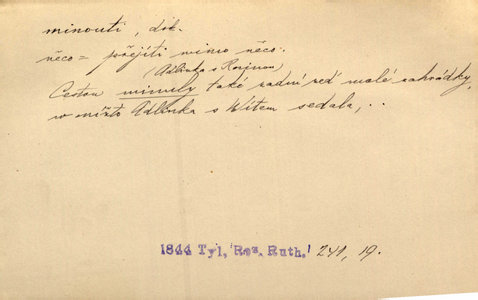 minouti, dok.
něco = přejíti mimo něco.
(Adlinka s Rozinou)
Cestou minuly také zadní zeď malé zahrádky,
v niž to Adlinka s Vítem sedala, ..
1844 Tyl, Roz. Ruth. 241, 19.